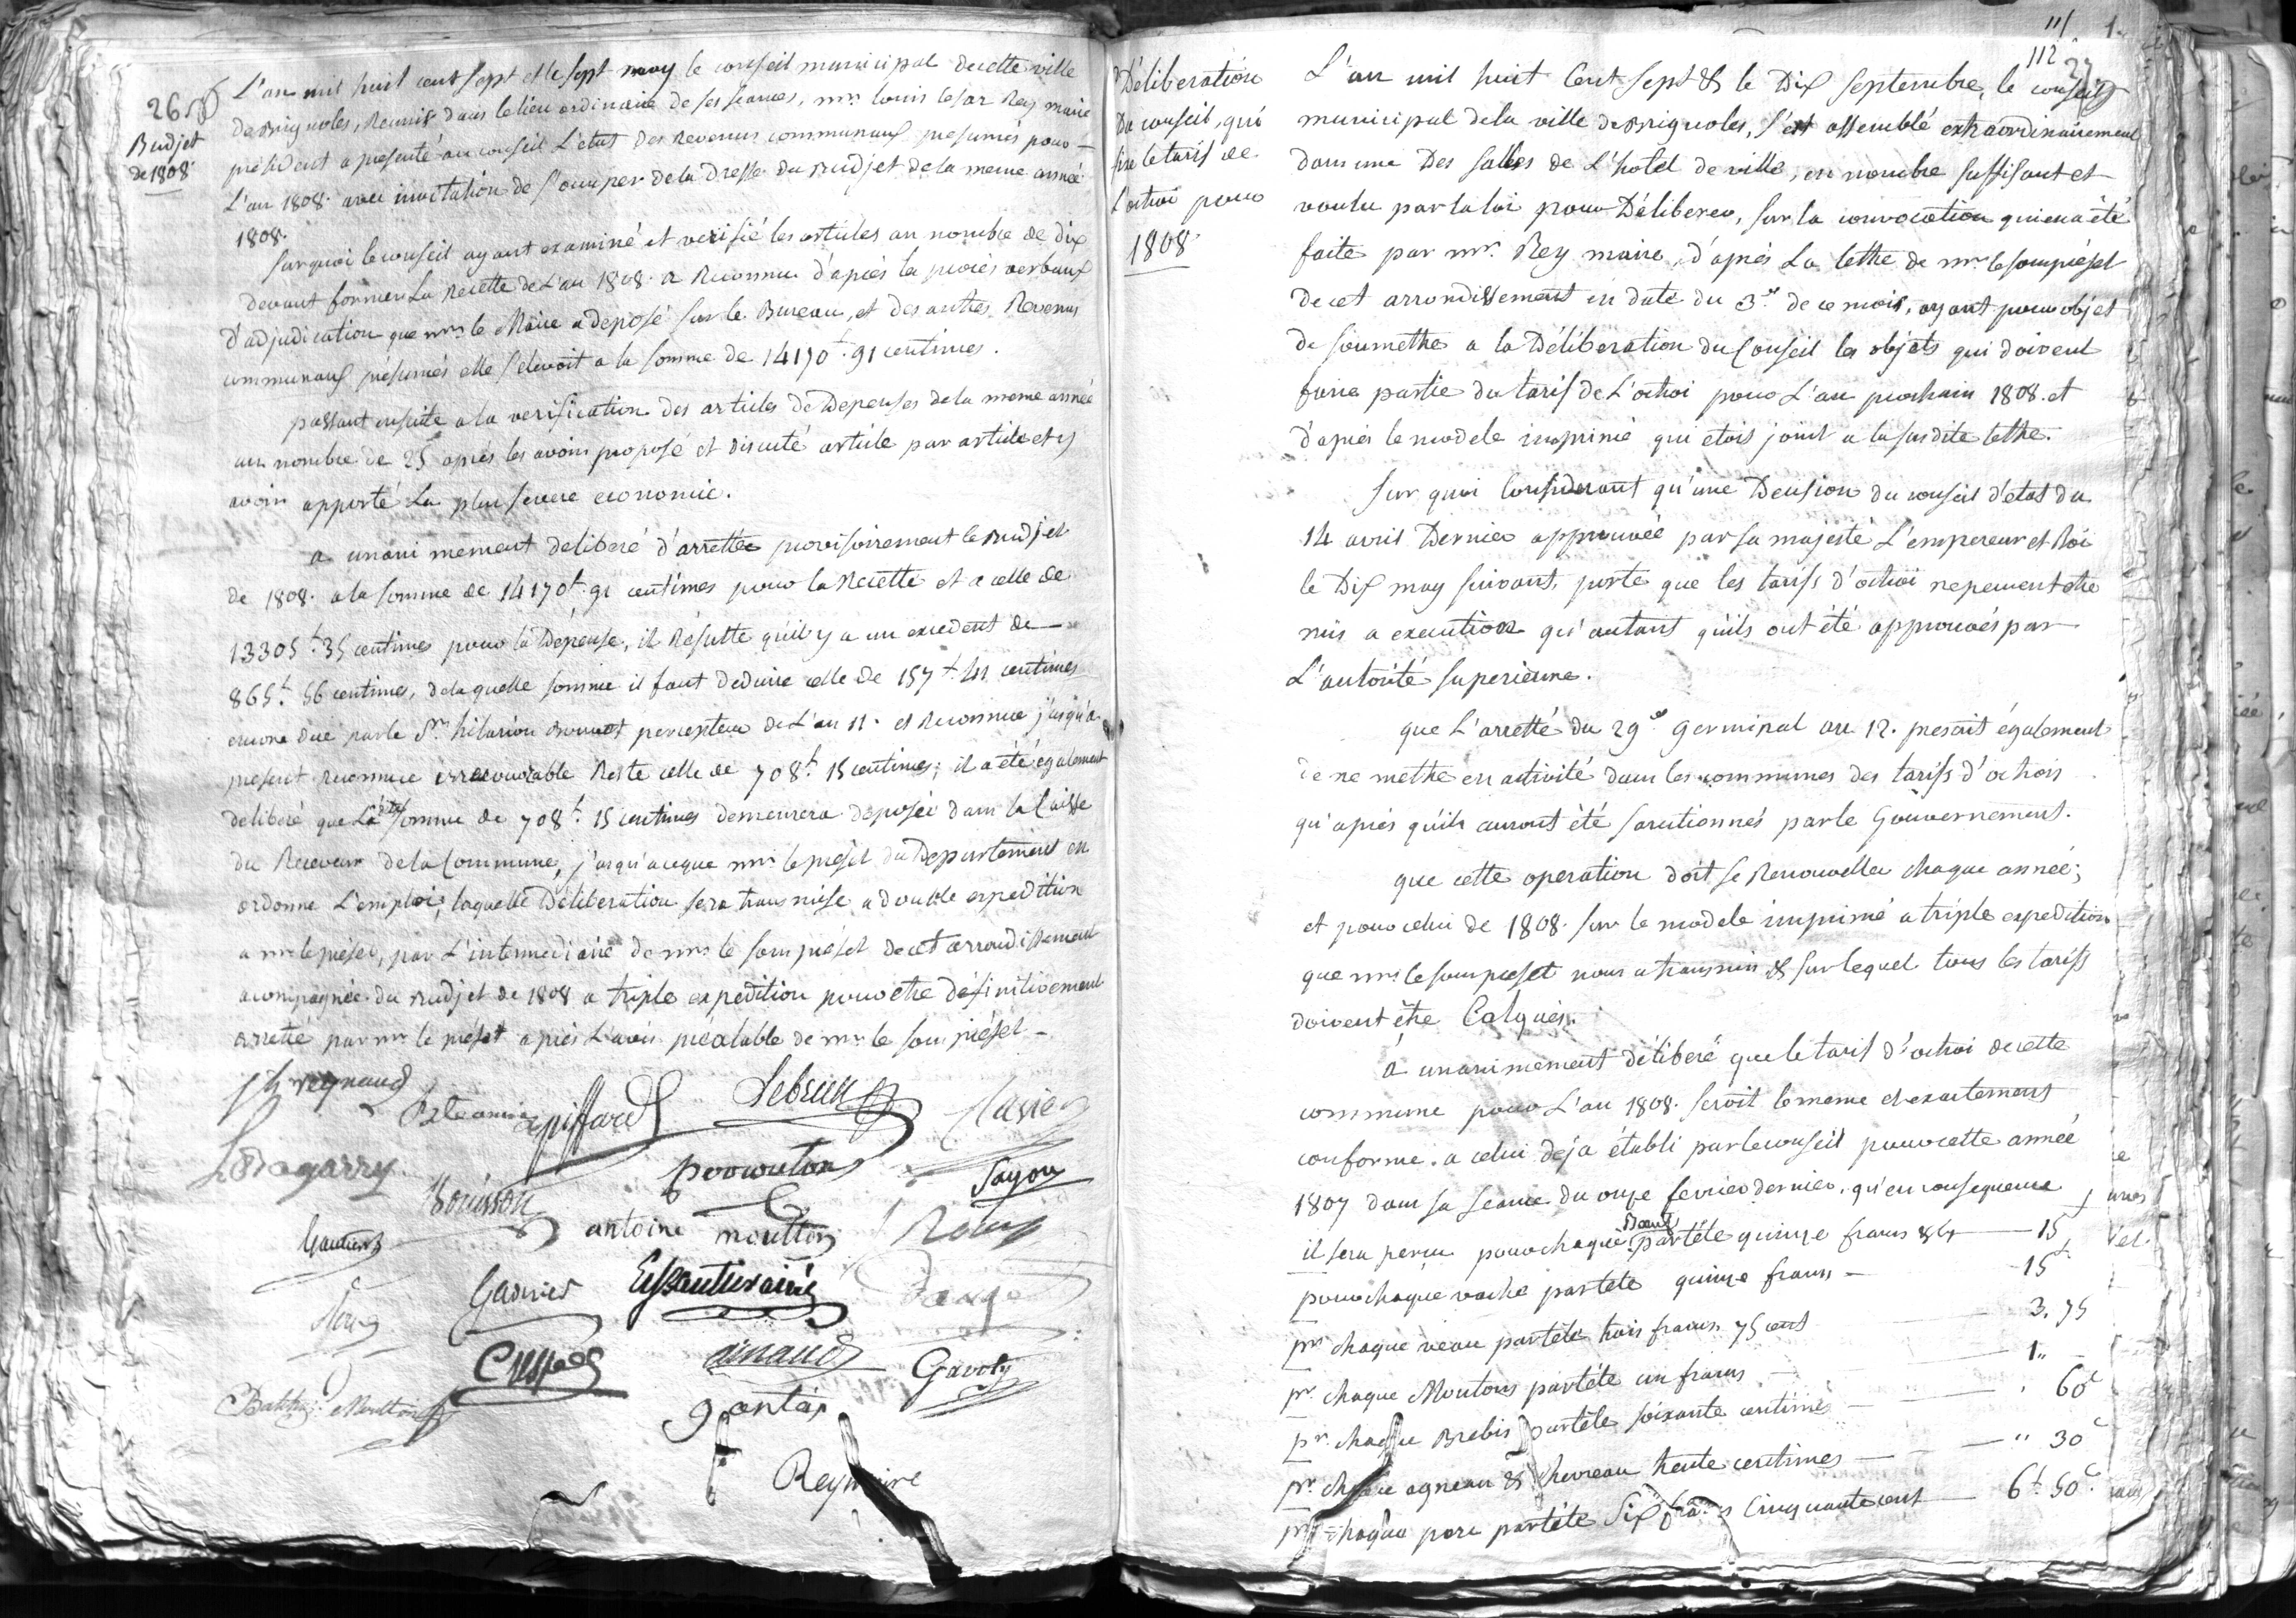 26
Budjet
de 1808.
L'an mil huit cent sept et le sept may le conseil municipal decette ville
de Brignoles, Reunis dans le lieu ordinaire de ses seances, mr. louis cesar Rey maire
président a presenté au conseil L'état des Revenus communaux presumés pour
L'an 1808. avec invitation de s'occuper de la Dresse du Budjet de la meme année
1808.
surquoi le conseil ayant examiné et verifié les articles au nombre de dix
devant former La Recette de L'an 1808. a Reconnu d'aprés les procés verbaux
d'adjudication que mr. le Maire a deposé sur le Bureau, et des autres Revenus
communaux présumés elle s'elevoit a la somme de 14170f. 91 centimes.
passant ensuite a la verification des articles de Depenses de la meme année
au nombre de 25 aprés les avoir proposé et discuté article par article et y
avoir apporté La plus severe economie.
a unanimement deliberé d'arretter provisoirement le Budjet
de 1808. a la somme de 14170f. 91 centimes pour la Recette et a celle de
13305f. 35 centimes pour la Depense, il Résulte qu'il y a un excedent de
865f. 56 centimes, de laquelle somme il faut deduire celle de 157f. 41 centimes
encore due par le Sr. hilarion percepteur de L'an 11. et Reconnue jusqu'a
present reconnue irrecouvrable Reste celle de 708f. 15 centimes; il a été également
deliberé que La dte somme de 708f. 15 centimes demeurera deposée dans la Caisse
du Receveur de la Commune, jusqu'aceque mr. le prefet du Departement en
ordonne L'emploi; laquelle Déliberation sera transmise a double expedition
a mr. le préfet, par L'intermediaire de mr. le sous préfet de cet arrondissement
acompagnée du Budjet de 1808 a triple expedition pour etre définitivement
arretté par mr. le préfet aprés L'avis préalable de mr. le sous préfet
Reynaud
piffard
Lebrun
Clavier
Dagarry
Bouisson
Sayou
Gautier
antoine moutton
Garnier
ainaud
Gavoty
Moutton
gantai
Rey maire
111
112
Déliberation
Du conseil, qui
fixe le tarif de
L'octroi pour
1808.
L'an mil huit Cent sept & le Dix septembre, le conseil
municipal dela ville de Brignoles, s'est assemblé extraordinairement
dans une Des salles de L'hotel de ville, en nombre suffisant et
voulu par la loi pour Déliberer, sur la convocation qui en a été
faite par mr. Rey maire, d'aprés La lettre de mr. le sous préfet
de cet arrondissement en date du 3e de ce mois, ayant pour objet
de soumettre a la Déliberation du Conseil les objets qui doivent
faire partie du tarif de L'octroi pour L'an prochain 1808. et
d'aprés le modele imprimé qui etois joint a la susdite lettre.
sur quoi Considerant qu'une Decision du conseil d'état du
14 avril Dernier approuvée par sa majesté L'empereur et Roi
le Dix may suivant, porte que les tarifs d'octroi ne peuvent etre
mis a execution qu'autant qu'ils ont été approuvés par
L'autorité superieure.
que L'arretté du 29e germinal an 12. prescrit également
de ne mettre en activité dans les communes des tarifs d'octrois
qu'aprés qu'ils auront été sanctionnés par le Gouvernement.
que cette operation doit se Renouveller chaque année;
et pour celui de 1808. sur le modele imprimé a triple expedition
que mr. le sous prefet nous a transmis & sur lequel tous les tarifs
doivent être Calqués.
a unanimement déliberé que le tarif d'octroi de cette
commune pour L'an 1808. seroit le meme et exactement
conforme. a celui deja établi par le conseil pour cette année
1807 dans sa seance du onze fevrier dernier. qu'en consequence
il sera perçu pour chaque Bœuf par tête quinze francs 15f
pour chaque vache par tete quinze francs 15f
pr. chaque veau par tête trois francs 75 cent 3. 75
pr. chaque Moutons par tête un francs 1"
pr. chaque Brebis par tête soixante centimes 60c
pr. chaque agneau & chevreau trente centimes " 30c
pr. chaque porc par tête six francs Cinquante cent 6f. 50c.